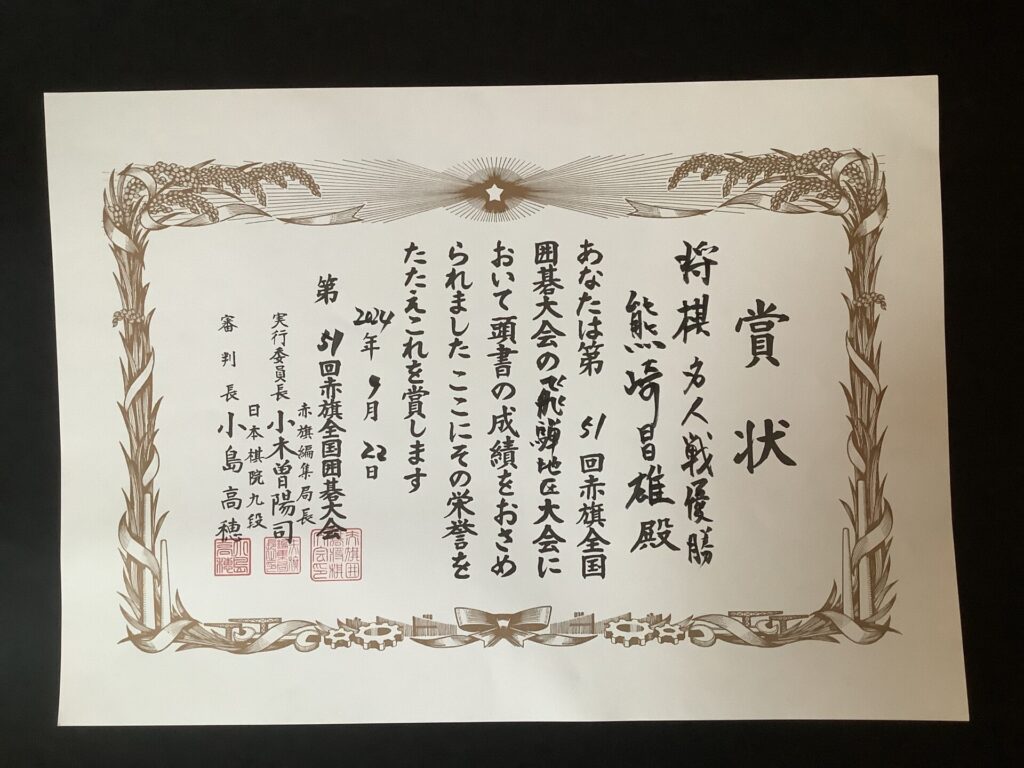 賞状
将棋名人戦優勝
熊崎昌雄殿
あなたは第51回赤旗全国
囲碁大会の飛騨地区大会に
おいて頭書の成績をおさめ
られました ここにその栄誉を
たたえこれを賞します
2024年9月22日
第51回赤旗全国囲碁大会
赤旗編集局長
実行委員長 小木曽陽司
日本棋院九段
審判長 小島高穂